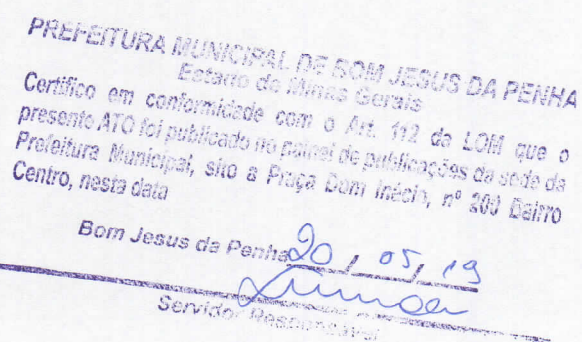 PREFEITURA MUNICIPAL DE BOM JESUS DA PENHA
Estado de Minas Gerais
Certifico em conformidade com o Art. 112 da LOM que o
presente ATO foi publicado no painel de publicações da sede da
Prefeitura Municipal, sito a Praça Dom Inácio, nº 200 Bairro
Centro, nesta data
Bom Jesus da Penha 20 / 05 / 19
Servidor Responsável